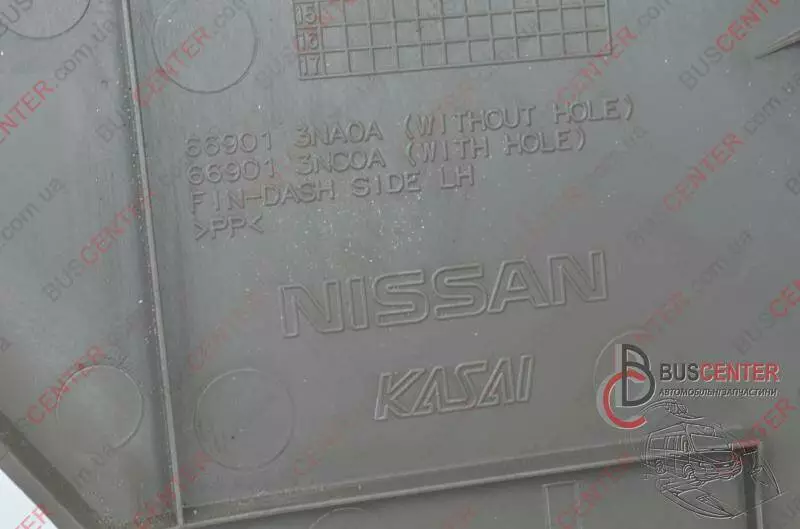 15
16
17
66901 3NA0A (WITHOUT HOLE)
66901 3NC0A (WITH HOLE)
FIN-DASH SIDE LH
>PP<
NISSAN
KASAI
BUSCENTER
АВТОМОБІЛЬНІ ЗАПЧАСТИНИ
BUSCENTER.com.ua